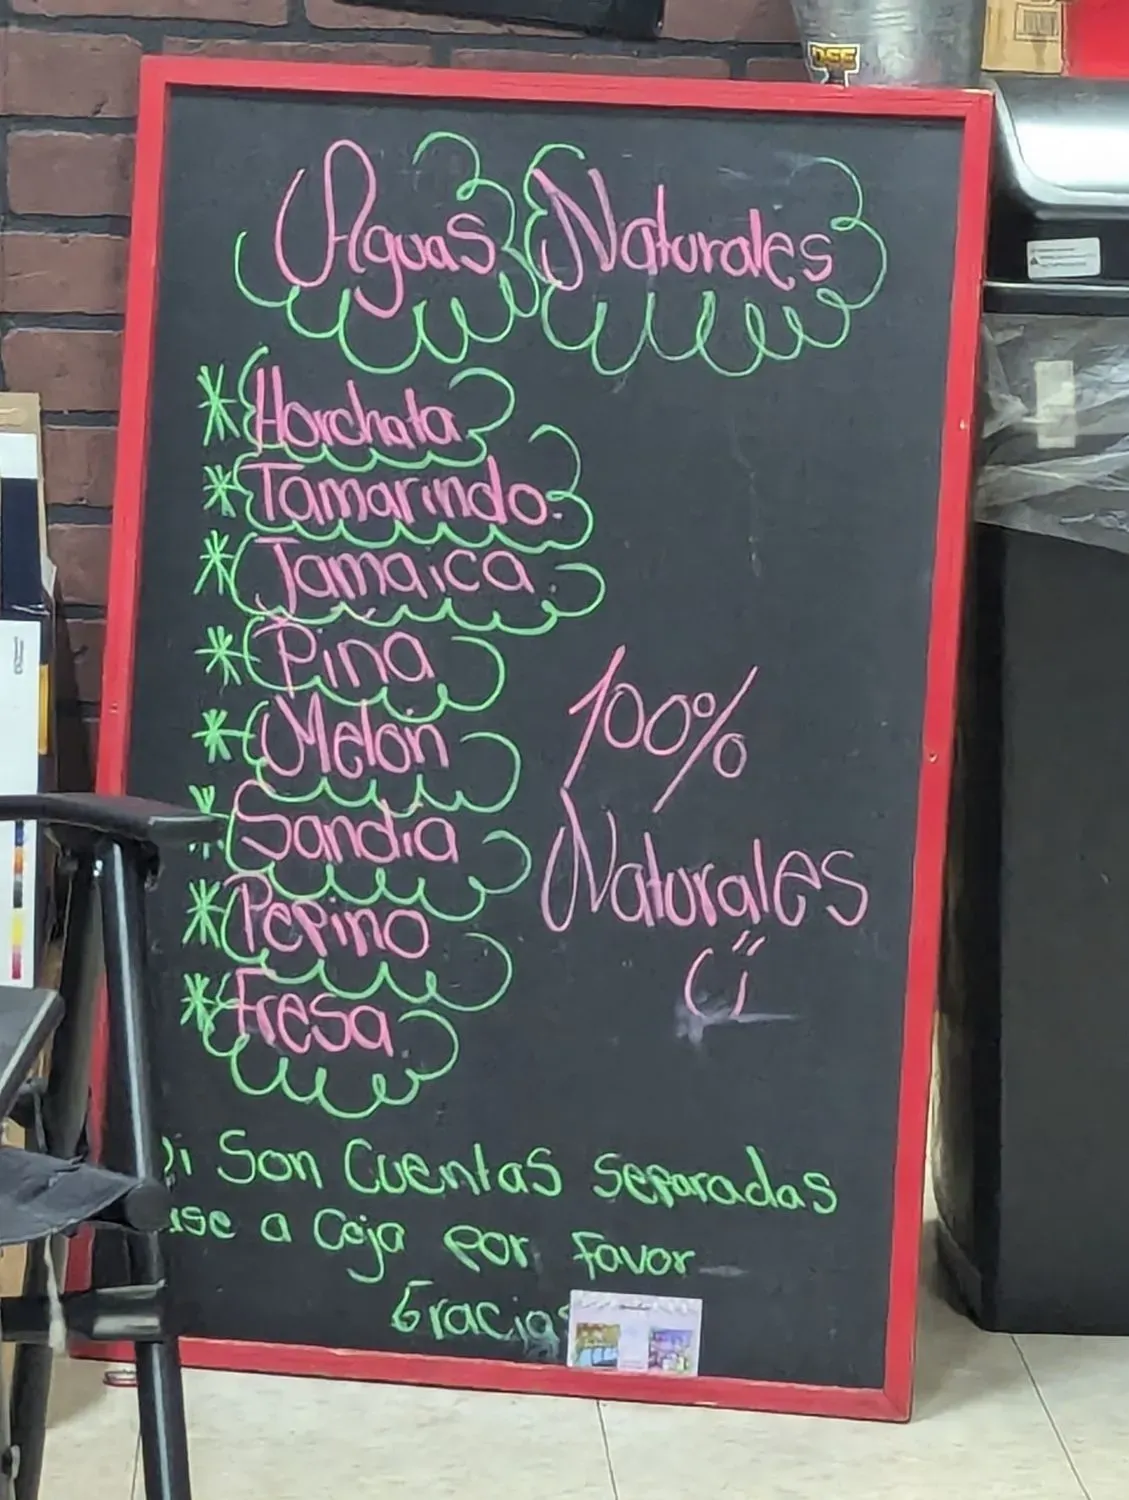 Aguas Naturales
* Horchata
* Tamarindo.
* Jamaica.
* Piña
* Melón
* Sandía
* Pepino
* Fresa
100%
Naturales
Si Son Cuentas Separadas
a Caja por favor
Gracias